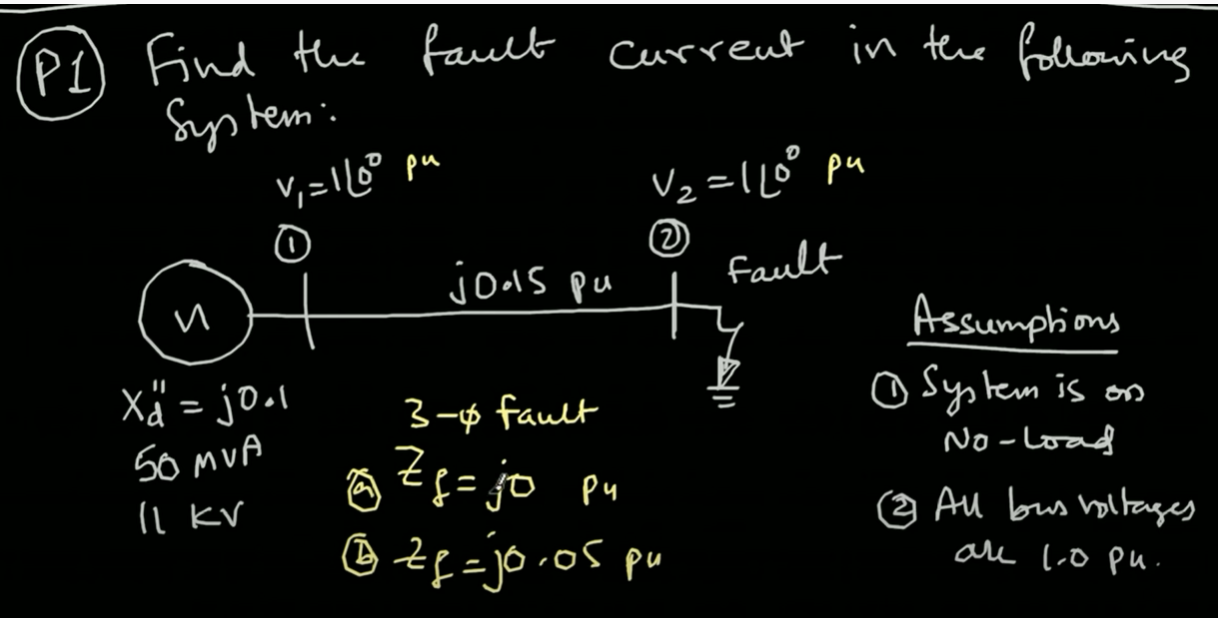 P1 Find the fault current in the following
System:
V₁=1∠0° pu
V₂=1∠0° pu
①
②
j0.15 pu
Fault
Xd" = j0.1
50 MVA
11 KV
3-φ fault
ⓐ Zf = j0 pu
ⓑ Zf = j0.05 pu
Assumptions
① System is on
No-Load
② All bus voltages
are 1.0 pu.